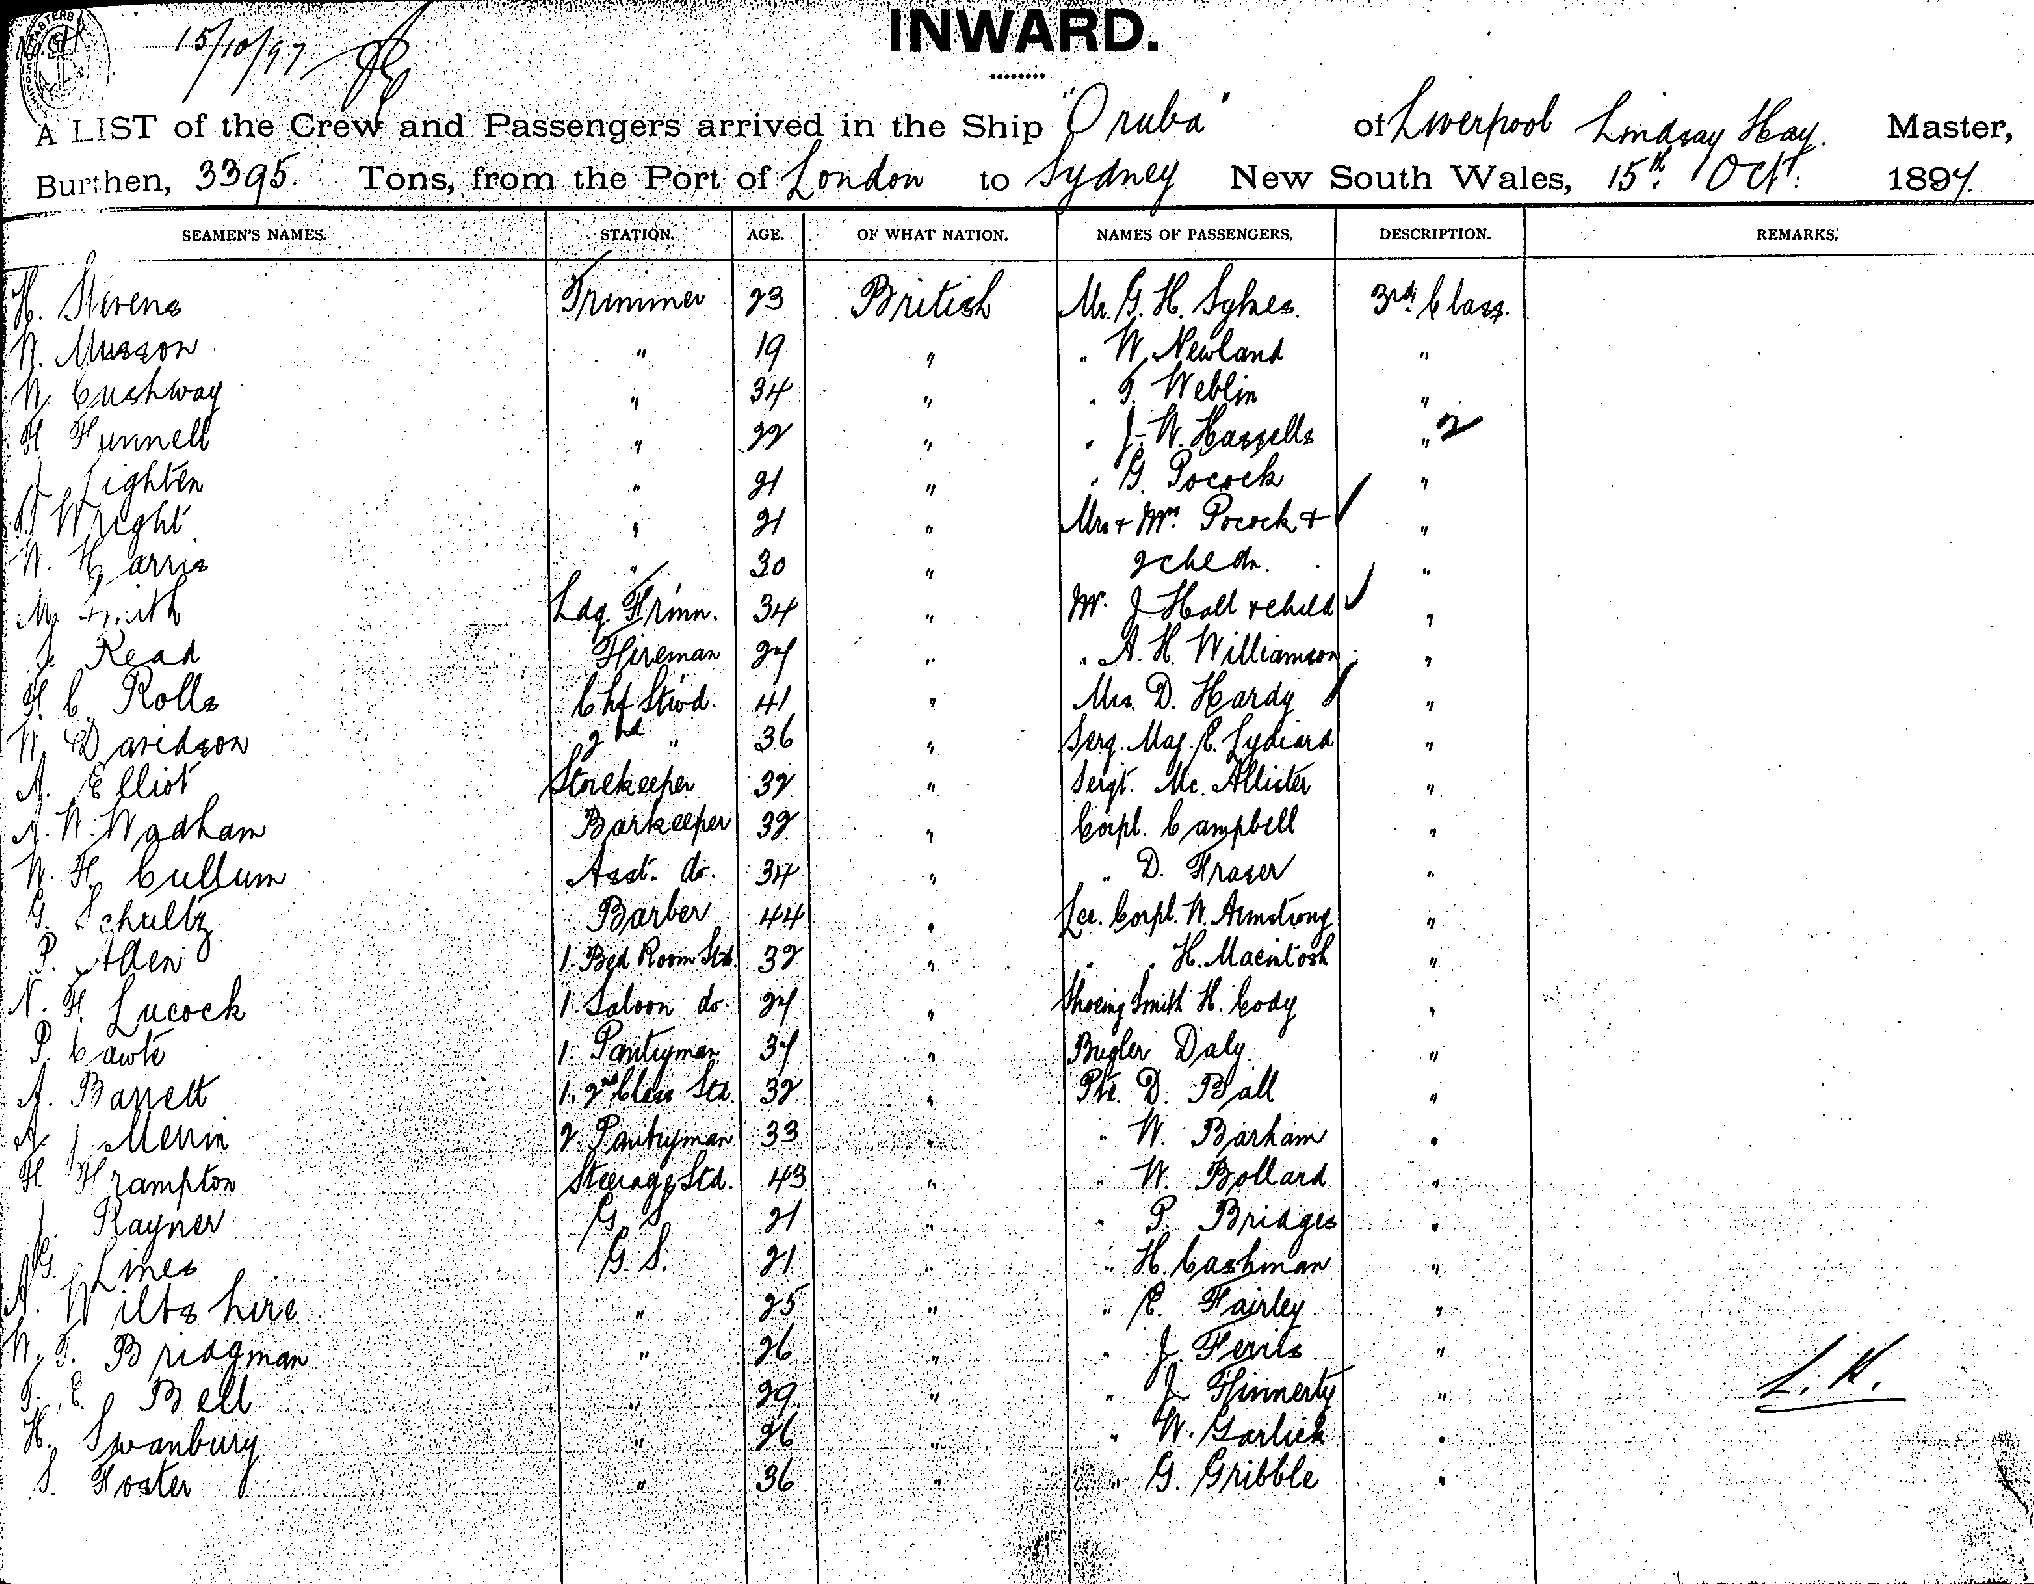 15/10/97
INWARD.
A LIST of the Crew and Passengers arrived in the Ship "Oruba" of Liverpool Lindsay Hay. Master,
Burthen, 3395. Tons, from the Port of London to Sydney New South Wales, 15th Oct. 1897.
SEAMEN'S NAMES. STATION. AGE. OF WHAT NATION. NAMES OF PASSENGERS. DESCRIPTION. REMARKS.
H. Stevens Trimmer 23 British Mr. G. H. Sykes. 3rd Class.
W. Musson " 19 " " W. Newland "
W. Cushway " 34 " " T. Weblin "
H Funnell " 22 " " J. W. Hassells " 2
J Lighten " 21 " " G. Pocock "
Wright " 21 " Mrs + Mrs. Pocock + "
W. Harris " 30 " 2 chldn. "
M. Smith Ldg. Trimr. 34 " Mr. J Holt + child "
J. Read Fireman 24 " " A. H. Williamson "
H. C. Rolls Chf Stwd. 41 " Mrs. D. Hardy "
W. Davidson 2nd " 36 " Serg. Maj. C. Lydiard "
A. Elliot Storekeeper 32 " Sergt. Mc. Allister "
A. W. Wadham Barkeeper 32 " Corpl. Campbell "
W. H. Cullum Asst. do. 34 " " D. Fraser "
G. Schultz Barber 44 " Lce. Corpl. W. Armstrong "
P. Allen 1. Bed Room Std. 32 " " " H. Macintosh "
N. F. Lucock 1. Saloon do. 24 " Shoeing Smith H. Cody "
P. Cawte 1. Pantryman 34 " Bugler Daly "
A. Barrett 1. 2nd Class Std. 32 " Pte. D. Ball "
A J Merrin 2. Pantryman 33 " " W. Barham "
H Frampton Steerage Std. 43 " " W. Bollard "
J. Rayner G. S. 21 " " P. Bridges "
G. Lines G. S. 21 " " H. Cashman "
A. Wiltshire " 25 " " C. Fairley "
W. T. Bridgman " 26 " " J. Ferris "
T. E Bell " 29 " " J. Finnerty "
L. H.
H. Swanbury " 26 " " W. Garlick "
S. Foster " 36 " " G. Gribble "